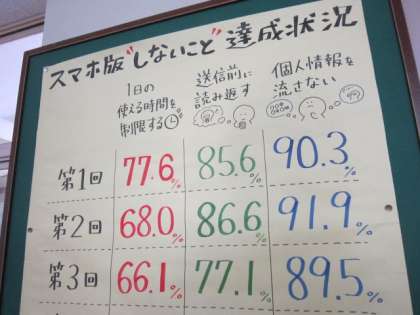 スマホ版"しないこと"達成状況
1日の
使える時間を
制限する
送信前に
読み返す
個人情報を
流さない
第1回 77.6% 85.6% 90.3%
第2回 68.0% 86.6% 91.9%
第3回 66.1% 77.1% 89.5%